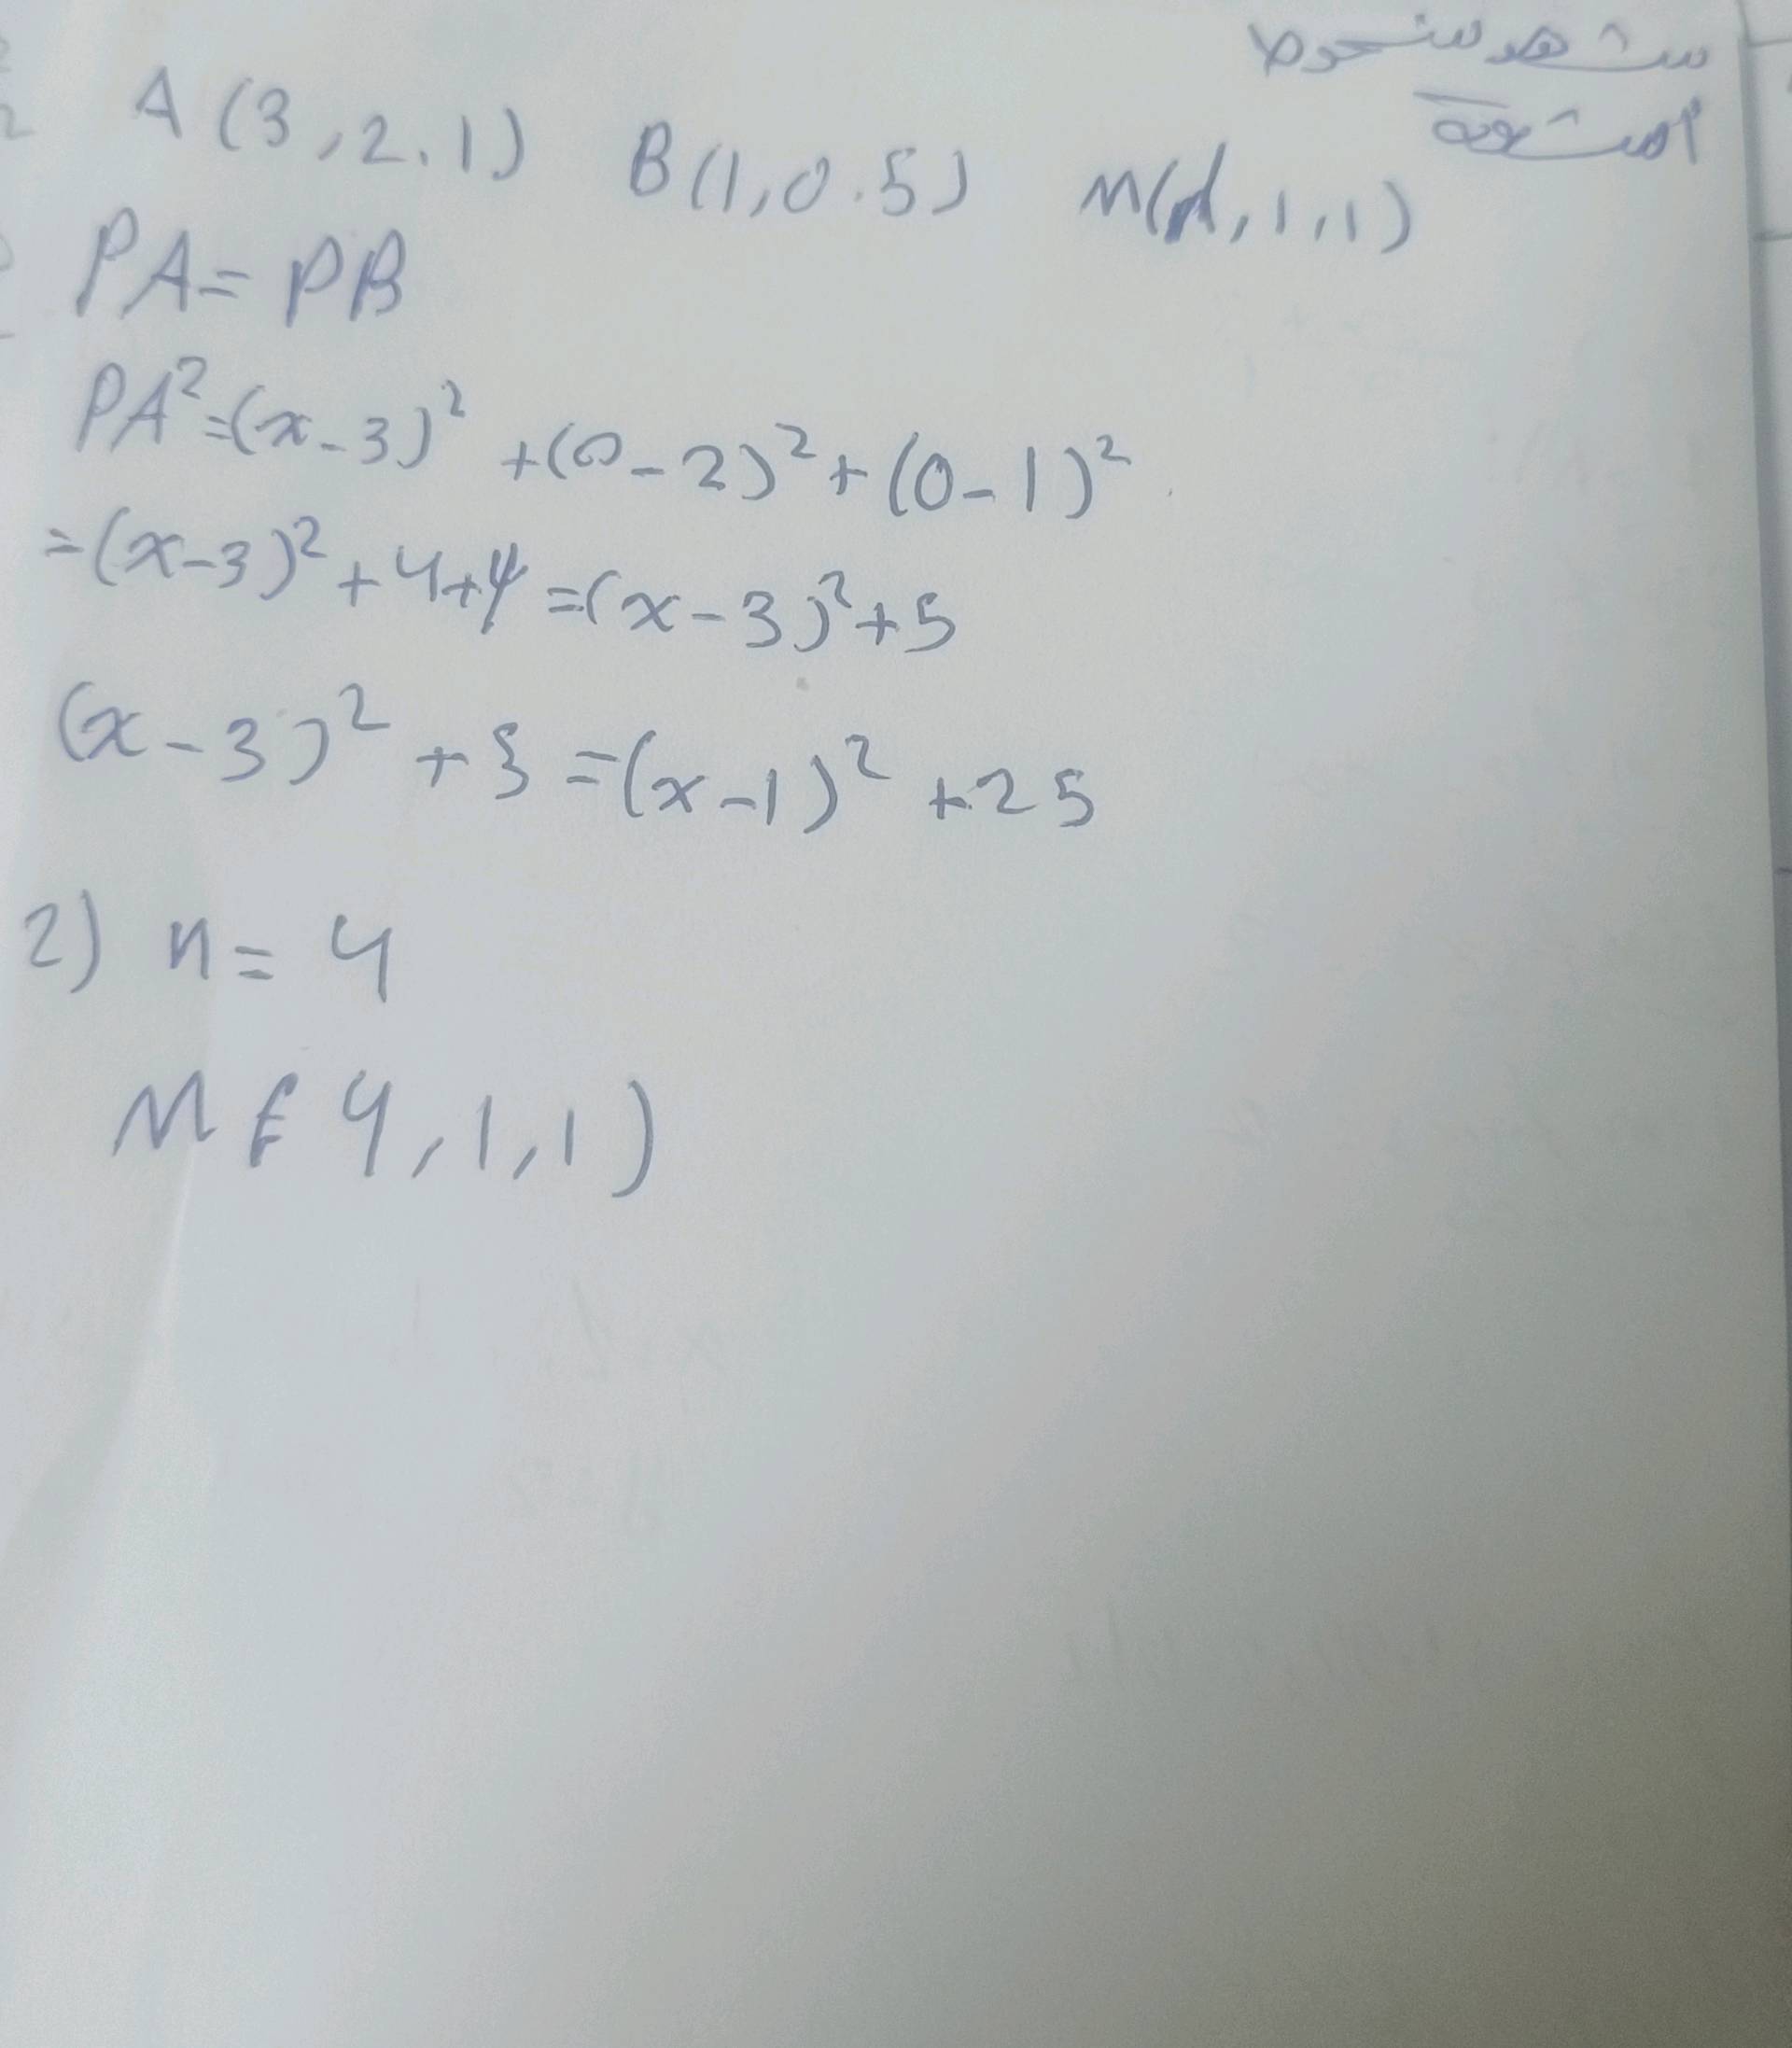 A (3,2,1) B(1,0.5) M(n,1,1)
PA = PB
PA² = (x-3)² + (0-2)² + (0-1)²
= (x-3)² + 4 + 4 = (x-3)² + 5
(x-3)² + 3 = (x-1)² + 25
2) n = 4
M(4,1,1)